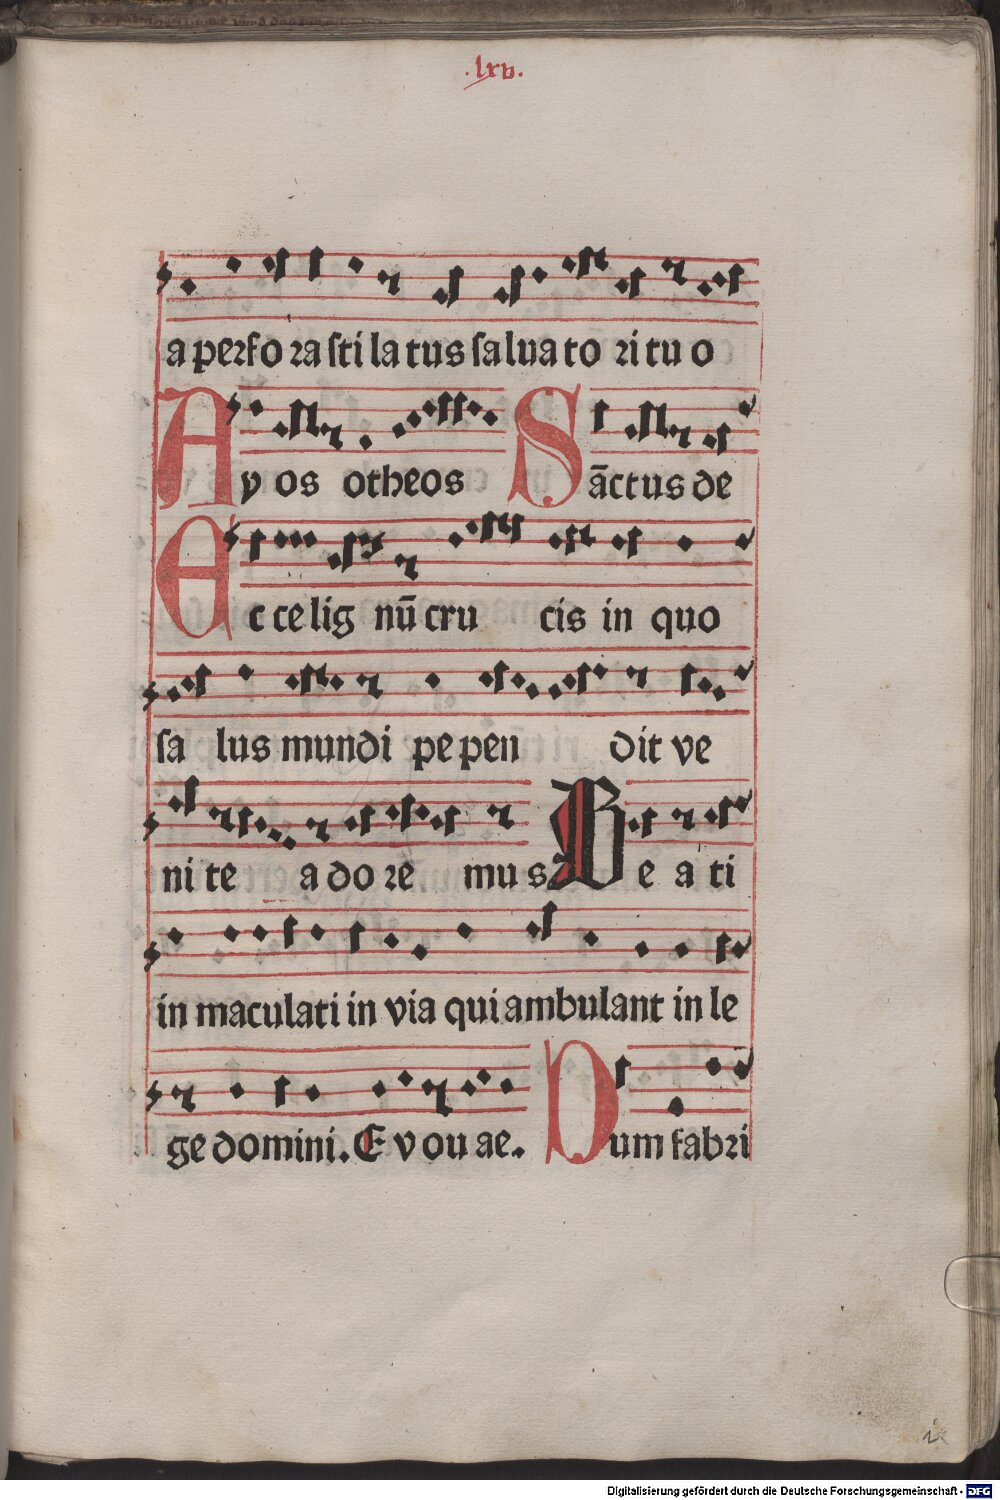 .lxv.
a perfo ra sti la tus salua to ri tu o
Ayos otheos Sāctus de
Ecce lig nū cru cis in quo
sa lus mundi pe pen dit ve
ni te a do re mus Be a ti
in maculati in via qui ambulant in le
ge domini. E v ou ae. Dum fabri
Digitalisierung gefördert durch die Deutsche Forschungsgemeinschaft - DFG